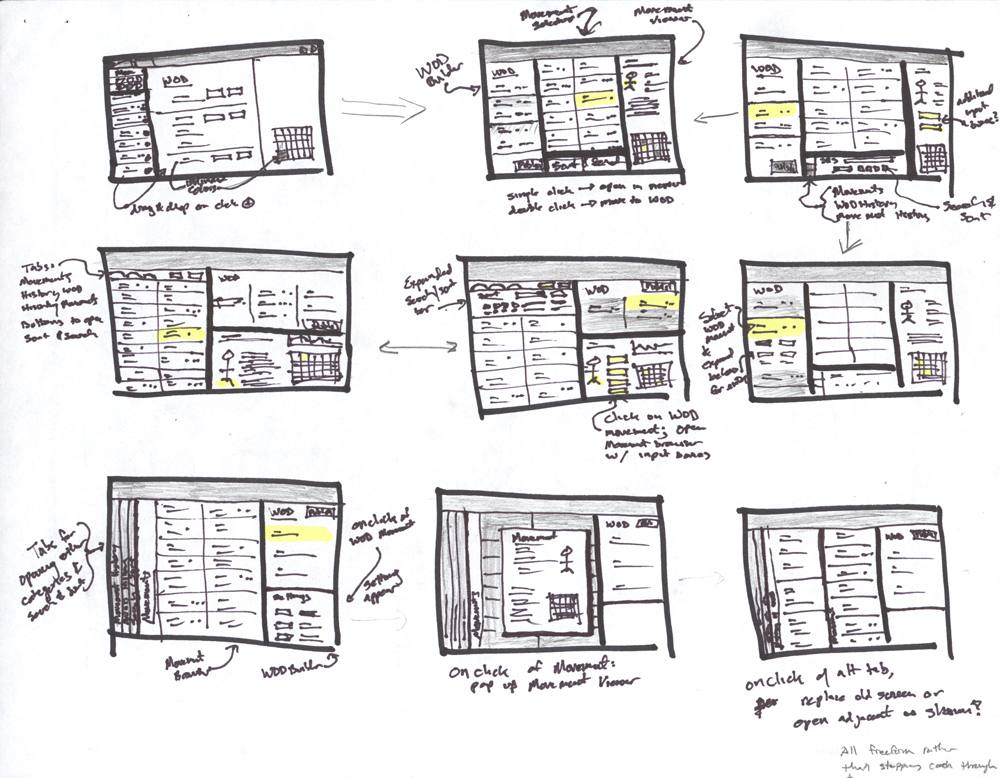 WOD
drag & drop on click
WOD
Builder
Movement
Selector
Movement
Viewer
WOD
Sort
Search
single click → open in viewer
double click → move to WOD
WOD
additional
input
Movements
WOD History
Movement History
Search &
Sort
Tabs:
Movements
History WOD
History Movements
Buttons to open
Sort & search
WOD
Expanded
Search/sort
bar
WOD
click on WOD
movement; open
Movement browser
w/ input boxes
Select
WOD
& expand
below
WOD
Tabs for
opening other
categories &
search & sort
Movements
WOD
Settings
onclick of
WOD Movement
settings
appear
Movement
Browser
WOD Builder
Movement
Movements
WOD
onclick of Movement:
pop up Movement Viewer
WOD
onclick of alt tab,
replace old screen or
open adjacent as shown?
All freeform rather
than stepping coach through